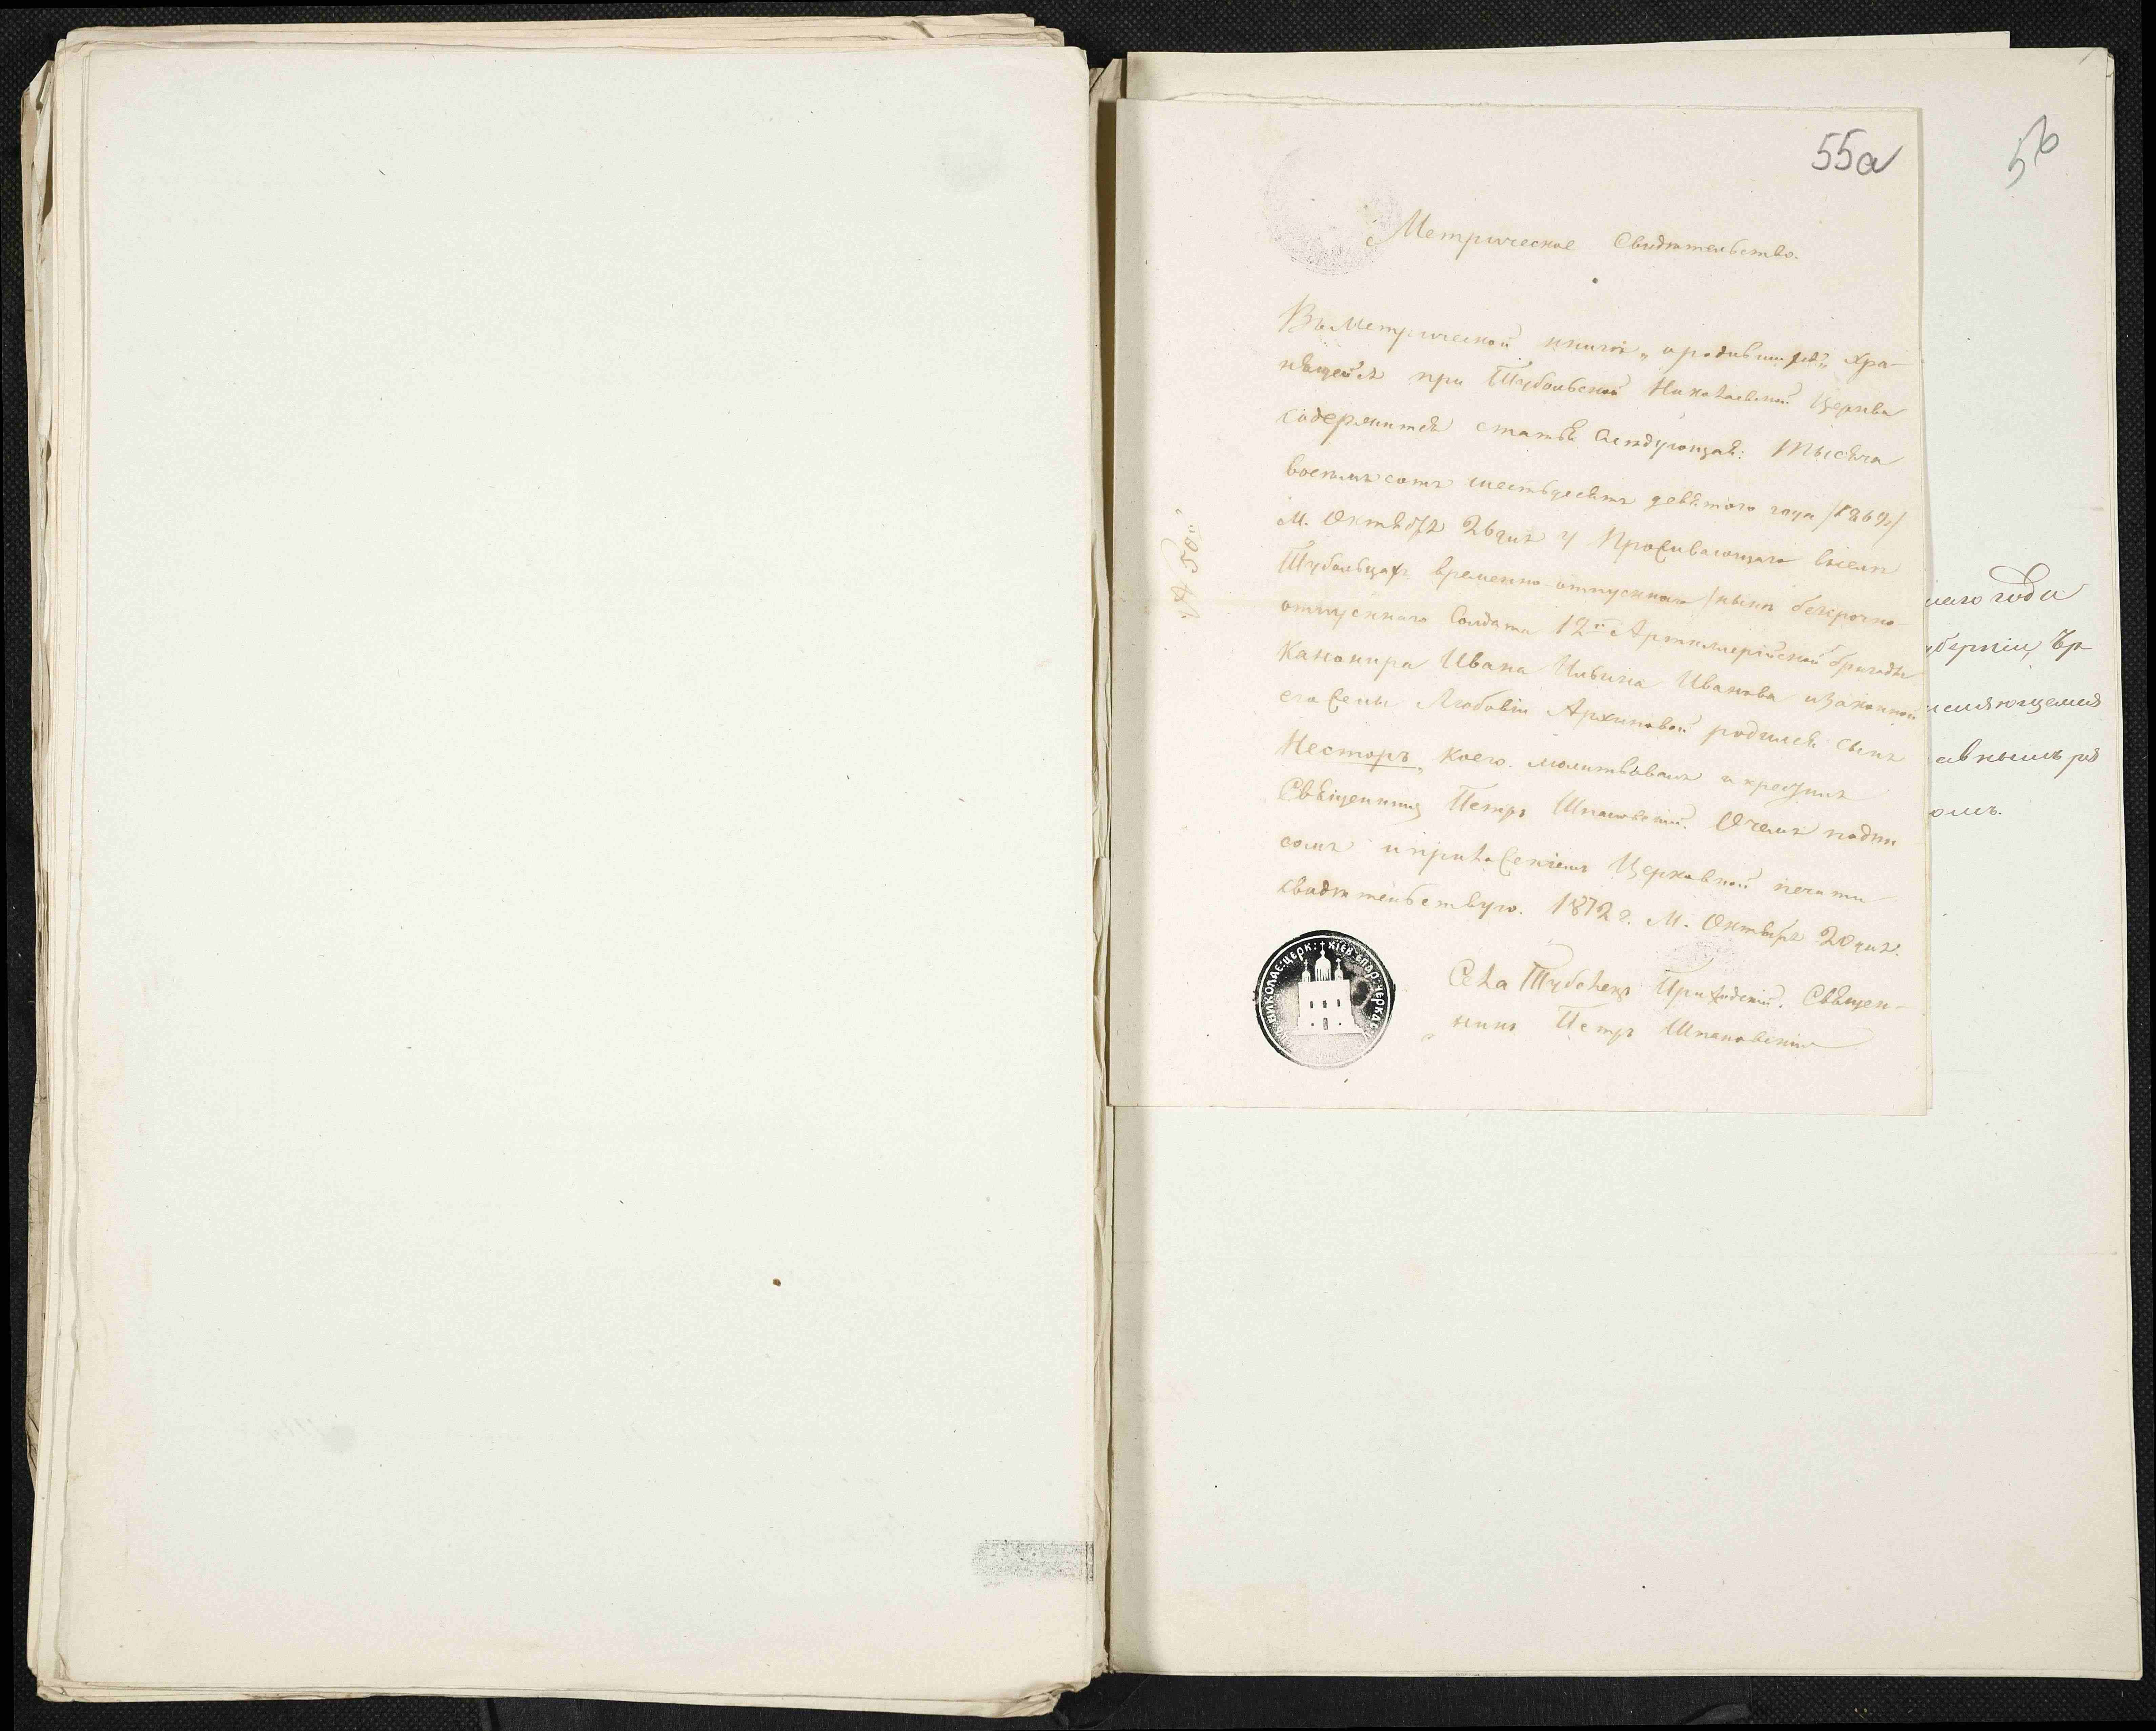 55а
56
Метрическое Свидѣтельство.
Въ Метрической книгѣ „о родившихся„ хра-
нящейся при Тубольской Николаевской Церкви
содержится статья слѣдующая: Тысяча
восемьсотъ шестьдесятъ девятого года /1869/
М. Октября 26 дня у Проживающаго въ селѣ
Тубольцахъ временно-отпускнаго /нынѣ безсрочно-
отпускнаго Солдата 12й Артиллерійской бригады
Канонира Ивана Ивановa и законной
его жены Любовіи Архиповой родился сынъ
Несторъ, коего молитвовалъ и крестилъ
Священникъ Петръ Шпаковскій. О чемъ подпи
сомъ и приложеніемъ Церковной печати
свидѣтельствую. 1872 г. М. Октября 20 дня.
Села Тубалецъ Приходскій Священ-
никъ Петръ Шпаковскій
№ 50
НИКОЛАЕ: ЦЕРК: КІЕВ: ЕПАР: ЧЕРКАС
года
берніи, Чр
ющемся
авнымъ
омъ.